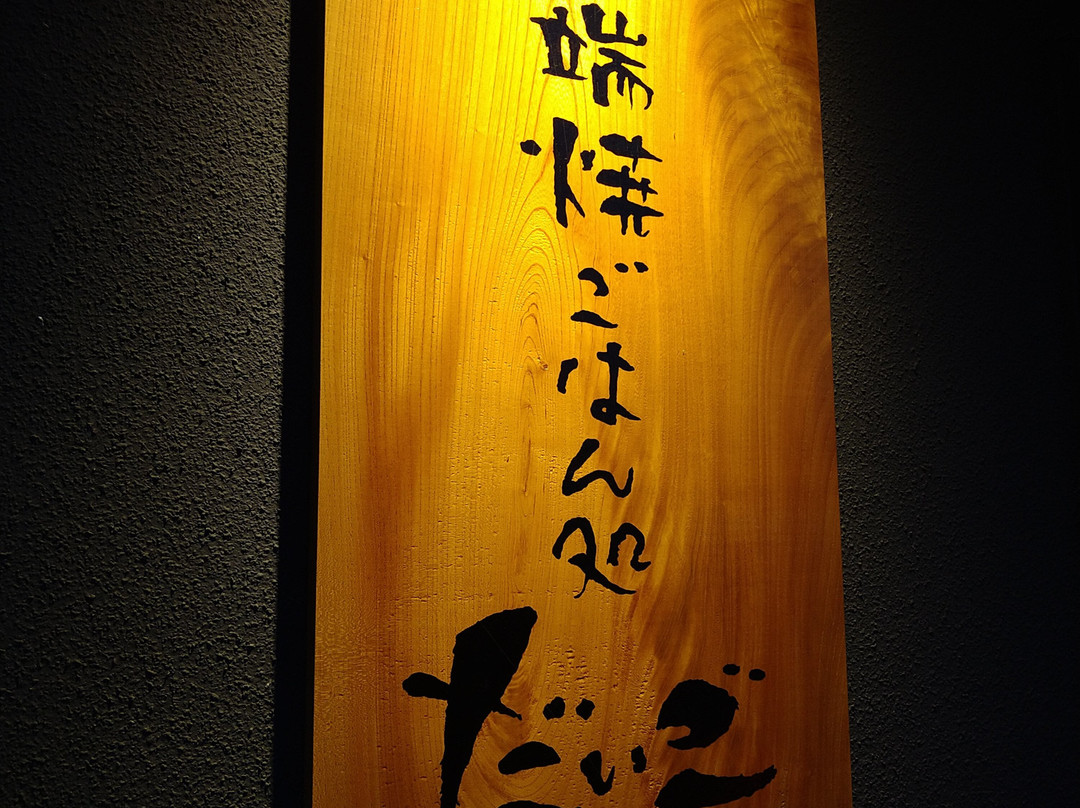 端焼ごはん処
だいご